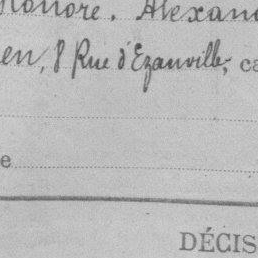 Honoré, Alexan
en, 8 Rue d'Ezanville, ca
e
DÉCIS